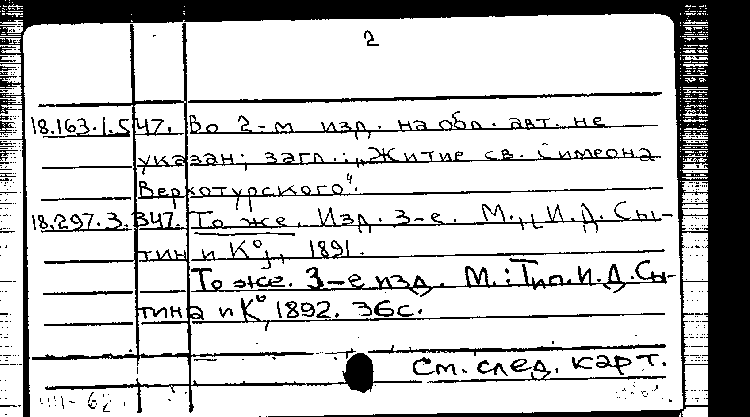 2
18.163.1.547. Во 2-м изд. на обл. авт. не
указан; загл.: „Житие св. Симеона
Верхотурского".
18.297.3.347. То же. Изд. 3-е. М., И.Д. Сы-
тин и К°, 1891.
То же. 3-е изд. М.: Тип. И.Д. Сы-
тина и К°, 1892. 36с.
См. след. карт.